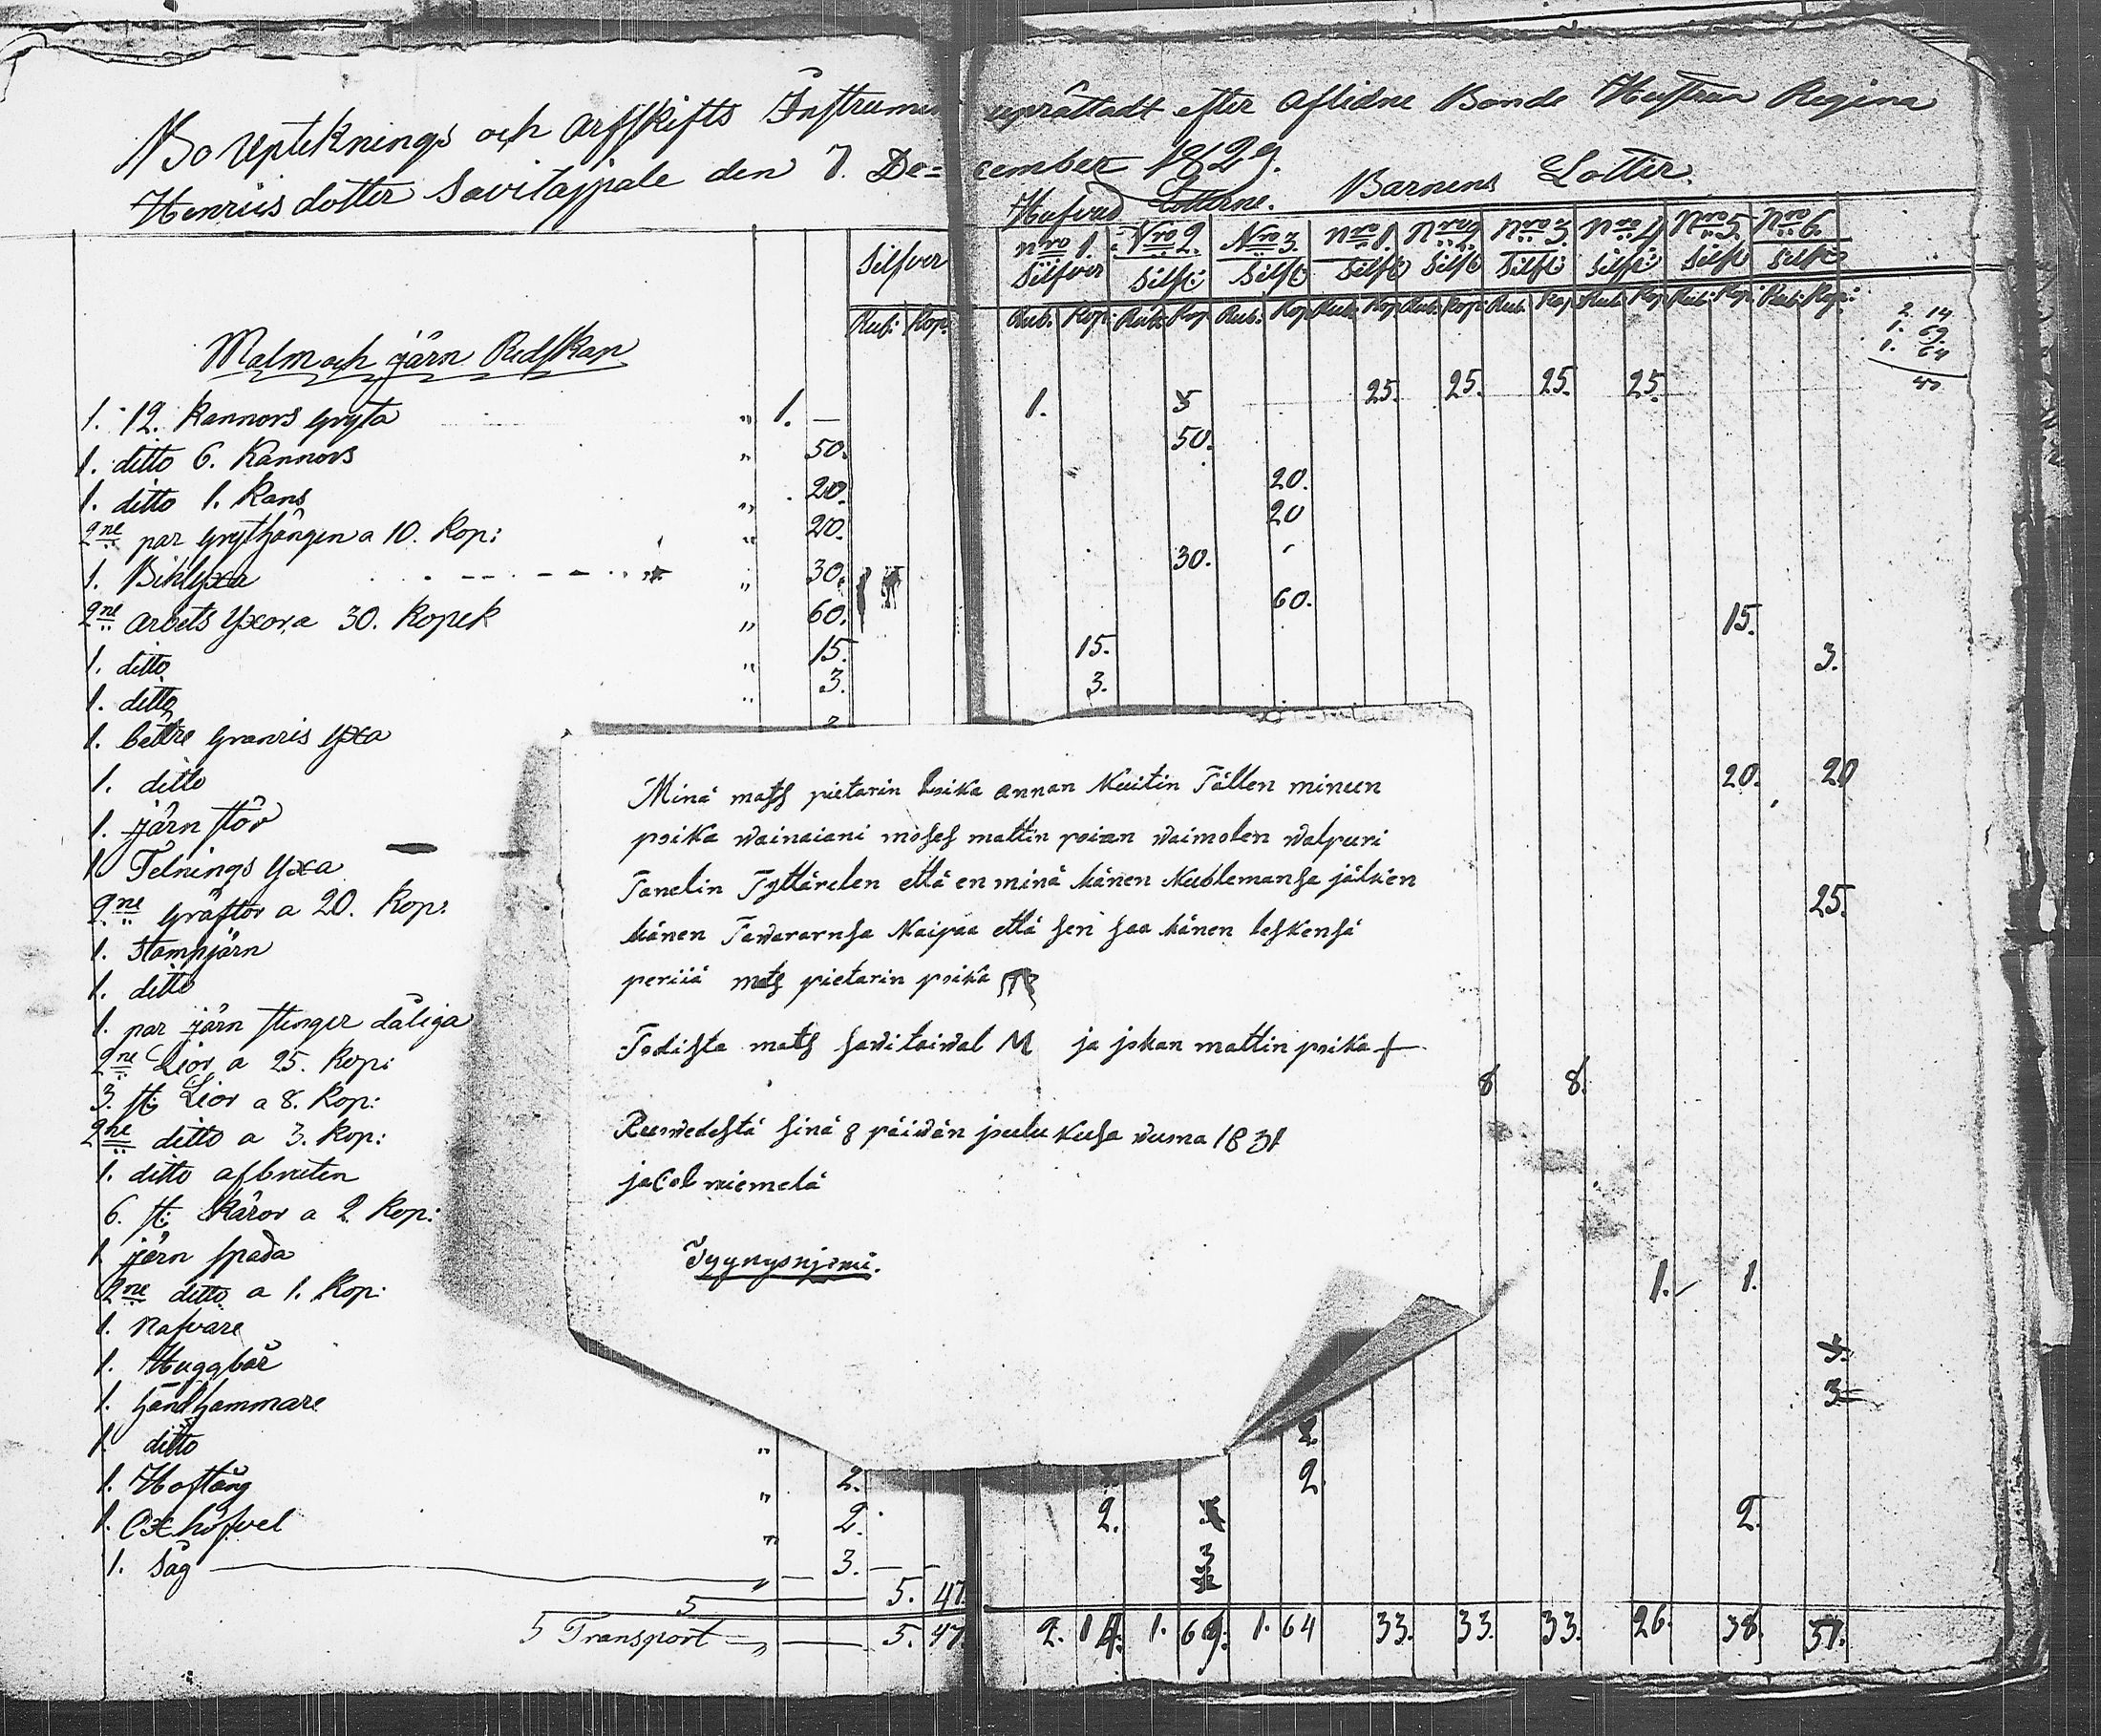 Bo Upteknings och Arfskifts Instrument uprättadt efter Aflidne Bonde Hustrun Regina
Henriksdotter Savitaipale den 7. December 1829.
Hufvud Lotterne. Barnens Lotter.
Silfver
nro 1. Nro 2. Nro 3. nro 1. Nro 2 Nro 3. Nro 4 Nro 5. Nro 6.
Silfver Silfr: Silfr: Silfr: Silfr: Silfr: Silfr: Silfr: Silfr:
Rub: Kop: Rub. Kop: Rub: Kop Rub. Kop Rub. Kop Rub. Kop: Rub. Kop Rub. Kop Rub: Kop: Rub: Kop:
2. 14
1. 69.
1. 64
Malm och järn Redskap
1. 12. Kannors gryta „ 1. — 1. 25. 25. 25. 25.
1. ditto 6. Kannors „ 50. 50.
1. ditto 1. Kans „ 20. 20.
2ne par grythängen a 10. Kop: „ 20. 20
1. Bihlyxa „ 30. 30.
2ne arbets Yxor a 30. Kopek „ 60. 60.
1. ditto „ 15. 15. 15.
1. ditto „ 3. 3. 3.
1. bättre granris yxa
1. ditto 20. 20
1. järn stör
1 Telnings yxa
2ne gräftor a 20. Kop: 25.
1. Stampjärn
1. ditto
1. par järn stenger dåliga
2ne Lior a 25. Kop:
3. st: Lior a 8. Kop: 8 8.
2ne ditto a 3. Kop:
1. ditto afbruten
6. st: Skäror a 2 Kop:
1 järn spada
2ne ditto a 1. Kop: 1. 1.
1. Nafvare
1. Huggbår
1. handhammare 3
1. ditto „ 2.
1. Hoftång „ 2. 2
1. Oxhöfvel „ 2. 2. 2.
1. Såg „ 3. 3
5 5. 47
5 Transport „ 5. 47 2. 14. 1. 69. 1. 64 33. 33. 33. 26. 38. 37.
Minä mats pietarin poika annan Kuitin Tällen minun
poika wainaiani moses mattin poian waimolen walpuri
Tanelin Tyttärelen että en minä hänen Kuolemansa jälkien
hänen Tawararnsa Kaipaa että sen saa hänen leskensä
periiä mats pietarin poika
Todista mats sawitaiwal M ja johan mattin poika +
Ruwedestä sinä 8 päiwän joulu Kusa wuma 1831
jacob niemelä
Tyynysniemi.